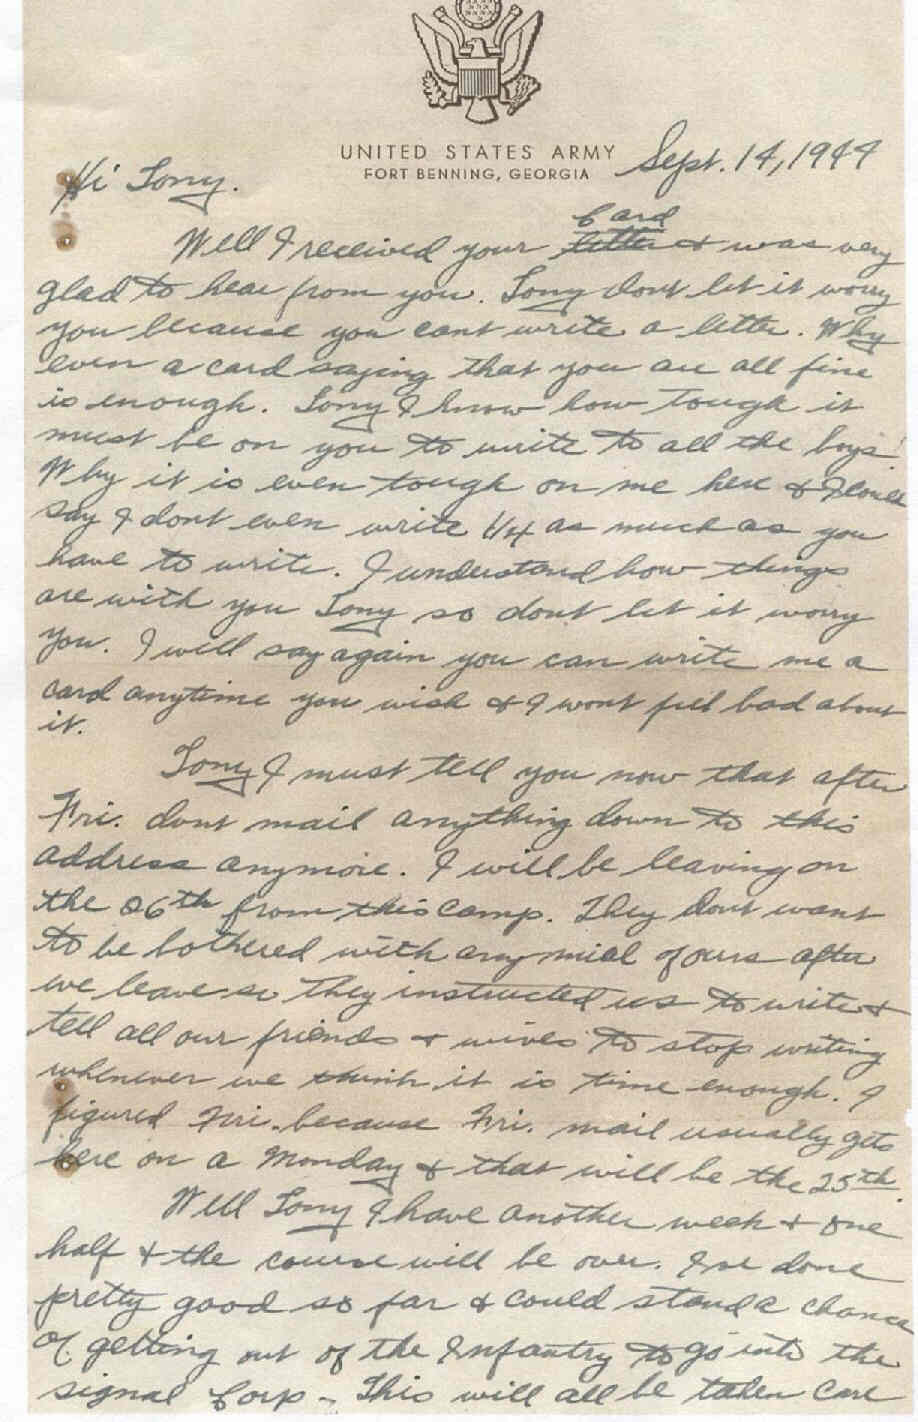 UNITED STATES ARMY
FORT BENNING, GEORGIA
Sept. 14, 1944
Hi Tony.
Card
Well I received your letter & was very
glad to hear from you. Tony dont let it worry
you because you cant write a letter. Why
even a card saying that you are all fine
is enough. Tony I know how tough it
must be on you to write to all the boys!
Why it is even tough on me here & I could
say I dont even write 1/4 as much as you
have to write. I understand how things
are with you Tony so dont let it worry
you. I will say again you can write me a
card anytime you wish & I wont feel bad about
it.
Tony I must tell you now that after
Fri. dont mail anything down to this
address anymore. I will be leaving on
the 26th from this camp. They dont want
to be bothered with any mial of ours after
we leave so they instructed us to write &
tell all our friends & wives to stop writing
whenever we think it is time enough. I
figured Fri. because Fri. mail usually gets
here on a Monday & that will be the 25th.
Well Tony I have another week & one
half & the course will be over. Ive done
pretty good so far & could stand a chance
of getting out of the Infantry to go into the
signal Corp - This will all be taken care